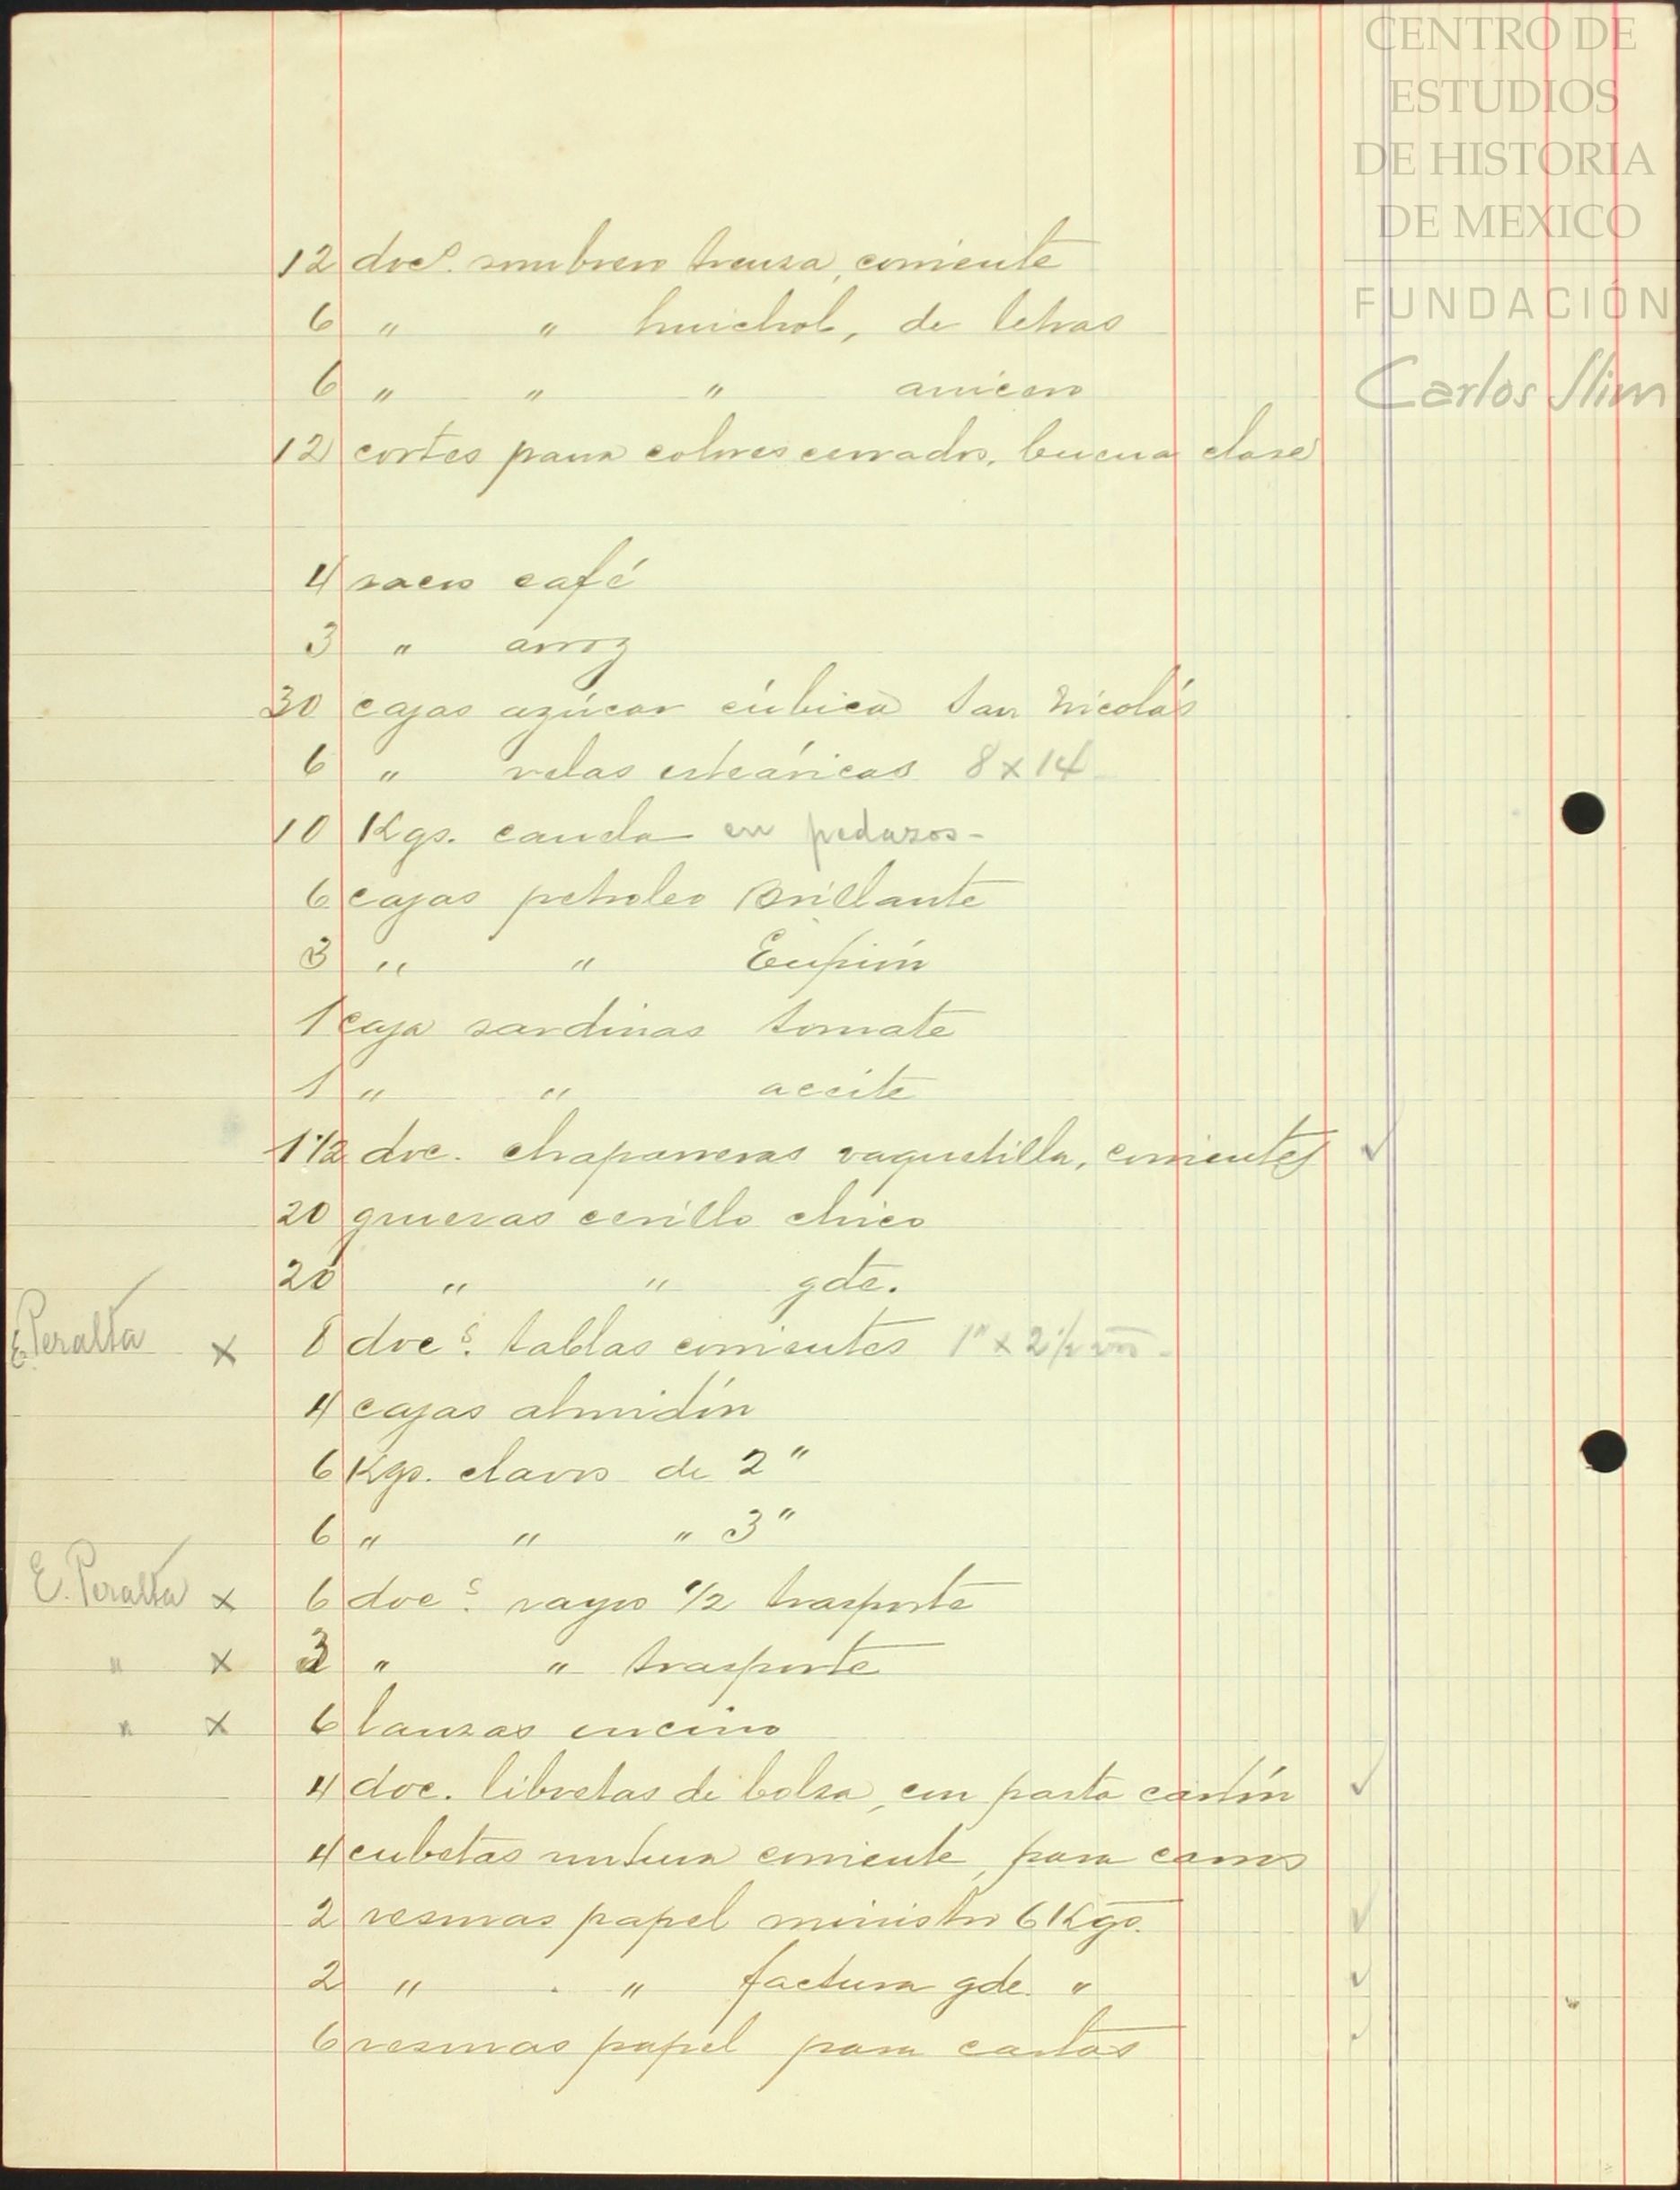 CENTRO DE
ESTUDIOS
DE HISTORIA
DE MEXICO
FUNDACIÓN
Carlos Slim
12 docs. sombrero trensa, corriente
6 " " huichol, de letras
6 " " " arriero
12 cortes pana colores cerrados, buena clase
4 sacos café
3 " arroz
30 cajas azúcar cúbica San Nicolás
6 " velas esteáricas 8 x 14
10 Kgs. canela en pedazos -
6 cajas petroleo Brillante
3 " " Eupión
1 caja sardinas tomate
1 " " aceite
1 1/2 doc. chaparreras vaquetilla, corrientes ✓
20 gruezas cerillo chico
20 " " gde.
E. Peralta x 8 docs. tablas corrientes 1" x 2 1/2
4 cajas almidón
6 Kgs. clavos de 2"
6 " " " 3"
E. Peralta x 6 docs. rayos 1/2 trasporte
" x 3 " " trasporte
" x 6 lanzas encino
4 doc. libretas de bolsa, con pasta cartón ✓
4 cubetas untura corriente, para carros
2 resmas papel ministro 6 Kgs. ✓
2 " " factura gde. " ✓
6 resmas papel para cartas ✓